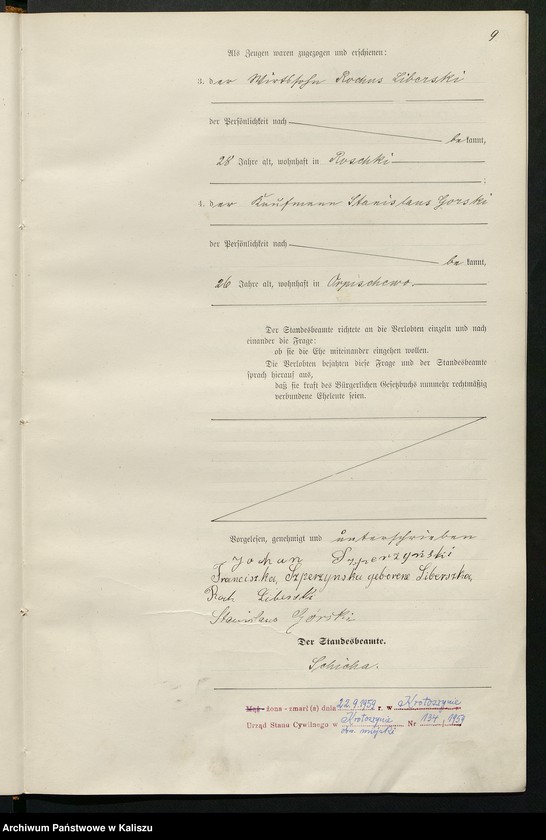 9
Als Zeugen waren zugezogen und erschienen:
3. der Wirtssohn Rochus Liberski
der Persönlichkeit nach
bekannt,
28 Jahre alt, wohnhaft in Roschki
;
4. der Kaufmann Stanislaus Gorski
der Persönlichkeit nach
bekannt,
26 Jahre alt, wohnhaft in Orpischewo.
Der Standesbeamte richtete an die Verlobten einzeln und nach
einander die Frage:
ob sie die Ehe miteinander eingehen wollen.
Die Verlobten bejahten diese Frage und der Standesbeamte
sprach hierauf aus,
daß sie kraft des Bürgerlichen Gesetzbuchs nunmehr rechtmäßig
verbundene Eheleute seien.
Vorgelesen, genehmigt und unterschrieben
Johan Szperzyński
Franciszka, Szperzynska geborene Liberska,
Roch Liberski
Stanislaus Górski
Der Standesbeamte.
Schicha.
Mąż - żona - zmarł (a) dnia 22.9.1959 r. w Krotoszynie
Urząd Stanu Cywilnego w Krotoszynie Nr 134 / 1959
obw. miejski
Archiwum Państwowe w Kaliszu